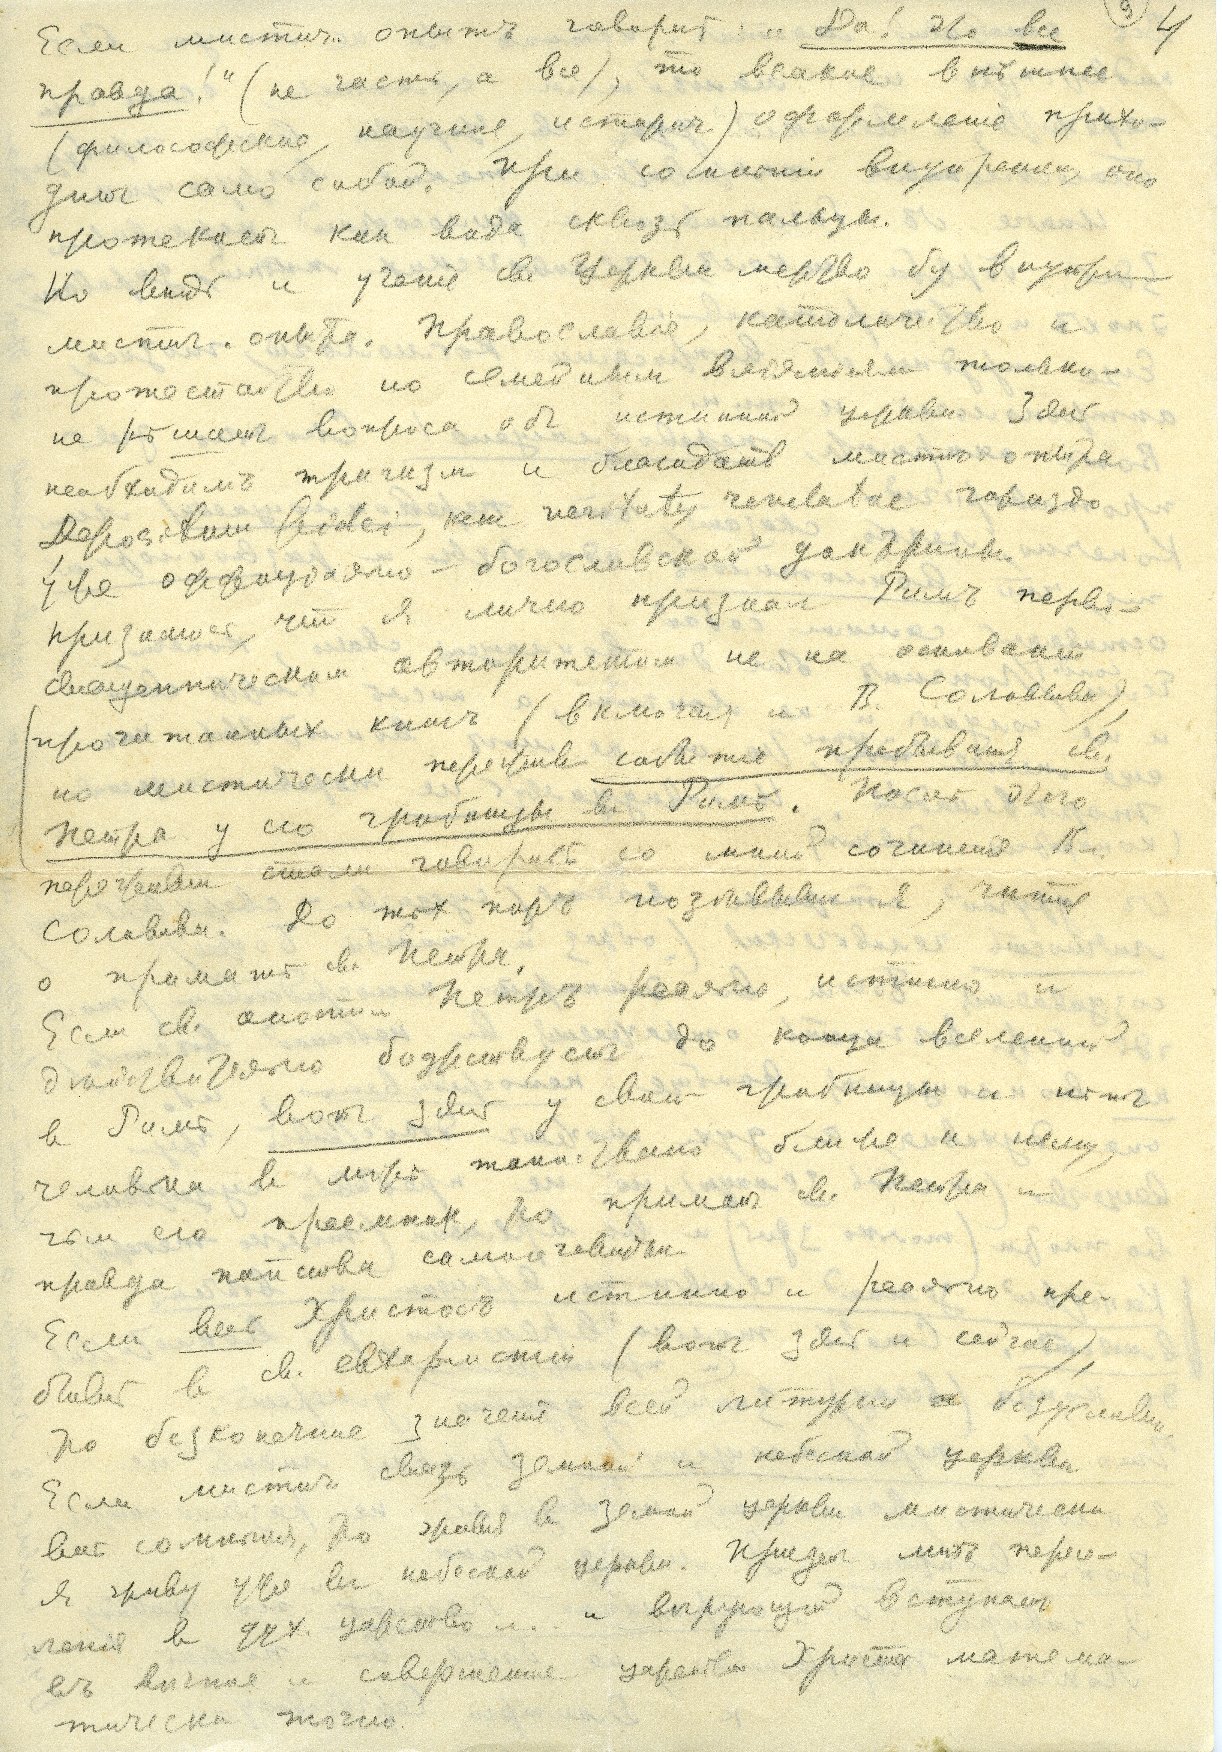 9 4
Если мистич. опытъ говорит: „Да! Но все
правда!" (не часть, а все), то всякое внѣшнее
(философское, научное, историч.) оформленіе прихо-
дитъ само собой. При сомнѣніи внутреннем, оно
протекаетъ как вода сквозь пальцы.
Но вѣдь и ученіе св. Церкви мертво без внутрен
мистич. опыта. Православіе, католичество и
протестантство по семейным вліяніям только
не рѣшаетъ вопроса объ истинной церкви. Здѣсь
необходимъ и благодать мистич. опыта
Depositum fidei, как veritates revelatae гораздо
уже оффиціально-богословской доктрины.
признаюсь, что я лично признал Римъ перво-
священническим авторитетом не на основаніи
прочитанных книгъ (включая и В. Соловьева),
но мистически пережив событіе пребыванія св.
Петра у его гробницы въ Римѣ. Послѣ этого
переживанія стали говорить со мной сочиненія Вл.
Соловьева. До тѣх поръ позѣвывался, читая
о приматѣ св. Петра.
Если св. апостол Петръ реально, истинно и
дѣйствительно бодрствуетъ до конца вселенной
в Римѣ, вотъ здѣсь у своей гробницы и нѣтъ
человѣка в мірѣ таинственно ближе к нему,
чѣм его преемник, то примат св. Петра и
правда папства самоочевидны.
Если весь Христосъ истинно и реально пре-
бывает в св. евхаристіи (вотъ здѣсь и сейчас),
то безконечное значеніе всей литургіи безусловно.
Если мистич связь земной и небесной церкви
внѣ сомнѣнія, то живя в земной церкви мистически
я живу уже въ небесной церкви. Придетъ мигъ пересе-
ленія в дух. царство и вѣрующій вступаетъ
въ вѣчное и совершенное царство Христа матема-
тически точно.